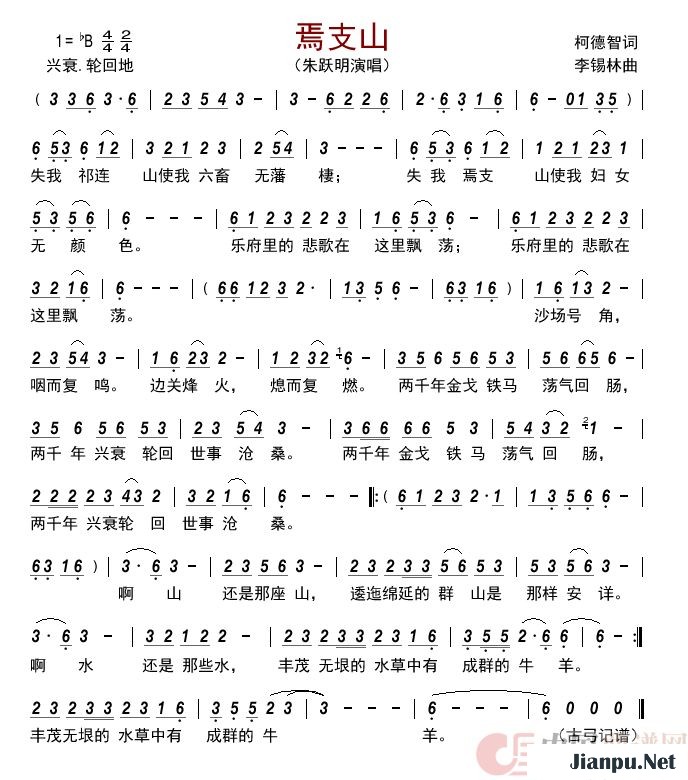 焉支山
1= ♭B 4/4 2/4
柯德智词
兴衰.轮回地
（朱跃明演唱）
李锡林曲
( 3 3 6 3· 6 | 2 3 5 4 3 - | 6 3 2 1 6 | 2· 6 3 1 6 | 6 - 0 1 3 5 )
6 5 3 6 1 2 | 3 2 1 2 3 | 2 5 4 3 - | 6 5 3 6 1 2 | 1 2 1 2 3 1
失我 祁连 山使我 六畜 无藩 棲； 失 我 焉支 山使我 妇 女
5 3 5 6 | 6 - - - | 6 1 2 3 2 2 3 | 1 6 5 3 6 - | 6 1 2 3 2 2 3
无 颜 色。 乐府里的 悲歌在 这里飘 荡； 乐府里的 悲歌在
3 2 1 6 | 6 - - - | ( 6 6 1 2 3 2· | 1 3 5 6 - | 6 3 1 6 ) | 1 6 1 3 2
这里飘 荡。 沙场号 角，
2 3 5 4 3 - | 1 6 2 3 - | 1 2 3 2 1 6 - | 3 5 6 5 6 5 3 | 5 6 6 5 6 -
咽而复 鸣。 边关烽 火， 熄而复 燃。 两千年金戈 铁马 荡气回 肠，
3 5 6 5 6 5 3 | 2 3 5 4 3 - | 3 6 6 6 5 5 3 | 5 4 3 2 2 1 -
两千 年 兴衰 轮回 世事 沧 桑。 两千年 金戈 铁 马 荡气 回 肠，
2 2 2 2 3 4 3 2 | 3 2 1 6 | 6 - - - ‖: ( 6 1 2 3 2·1 | 1 3 5 6 6
两千年 兴衰轮 回 世事 沧 桑。
6 3 1 6 ) | 3· 6 3 - | 2 3 2 2 3 5 | 2 3 2 3 3 5 3 5 | 5 3 5 6 -
啊 山 还是那座 山， 逶迤绵延的 群山是 那样 安 详。
3· 6 3 - | 3 2 1 2 2 - | 2 3 2 3 3 2 3 1 6 | 3 5 5 5 2·6 | 6 - :‖
啊 水 还是 那些水， 丰茂 无垠的 水草中有 成群的 牛 羊。
2 3 2 3 3 2 3 1 6 | 3 5 5 5 2 3 | 3 - - - | 6 - - - | 6 0 0 0 ‖
丰茂无垠的 水草中有 成群的 牛 羊。 （古弓记谱）
Jianpu.Net